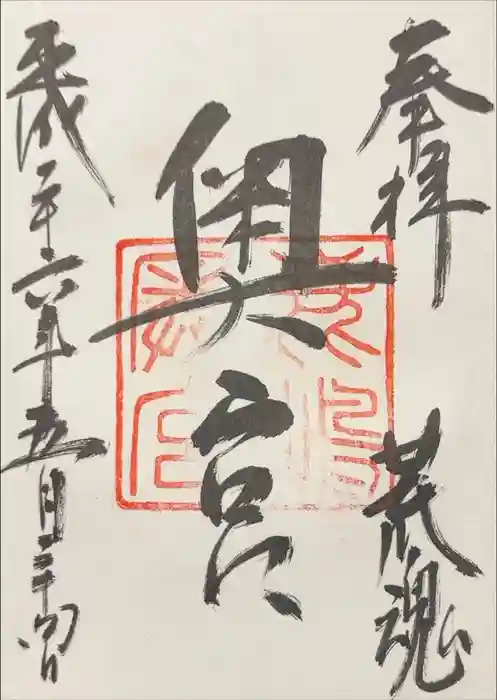 奉拝 荒魂
奥宮
平成二十六年五月二十四日